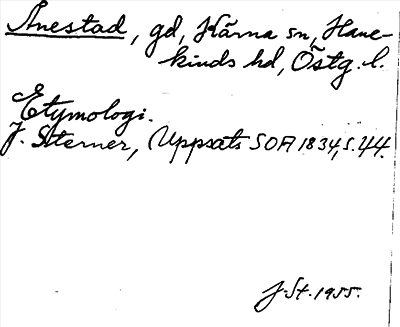 Anestad, gd, Kärna sn, Hane-
kinds hd, Östg. l.
Etymologi.
J. Sterner, Uppsats SOA 1834, s. 44.
J. St. 1955.